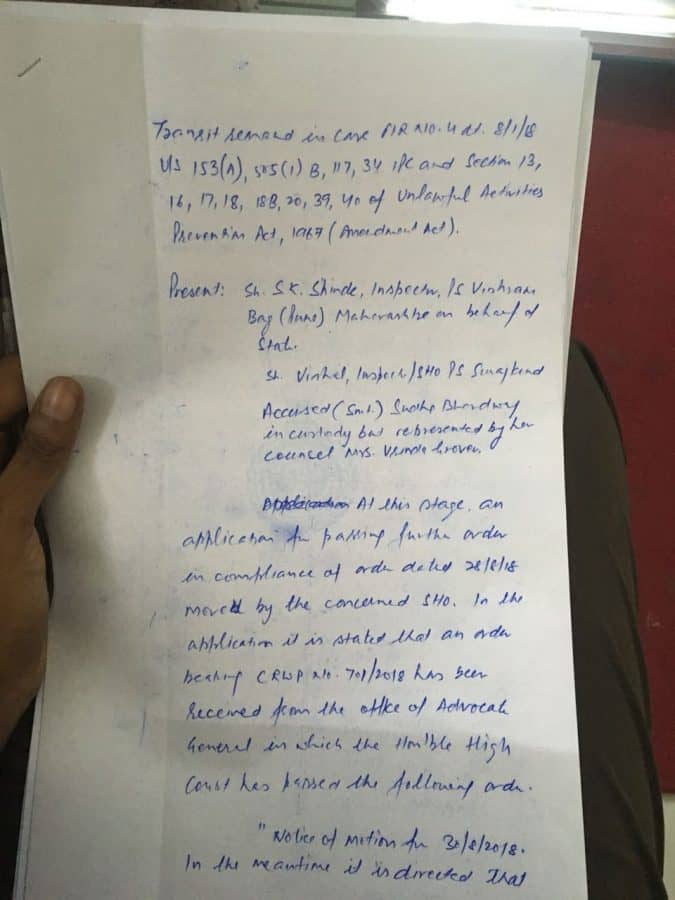 Transit remand in case FIR No. 4 dt. 8/1/18
U/S 153(A), 505(1) B, 117, 34 IPC and Section 13,
16, 17, 18, 18B, 20, 39, 40 of Unlawful Activities
Prevention Act, 1967 (Amendment Act).
Present: Sh. S.K. Shinde, Inspector, PS Vishram
Bag (Pune) Maharashtra on behalf of
State.
Sh. Vishal, Inspect/SHO PS Surajkund
Accused (Smt.) Sudha Bhardwaj
in custody but represented by her
counsel Mrs. Vrinda Grover.
At this stage, an
application for passing further order
in compliance of order dated 28/8/18
moved by the concerned SHO. In the
application it is stated that an order
bearing CRWP No. 701/2018 has been
received from the office of Advocate
General in which the Hon'ble High
Court has passed the following order.
"Notice of Motion for 30/8/2018.
In the meantime it is directed that